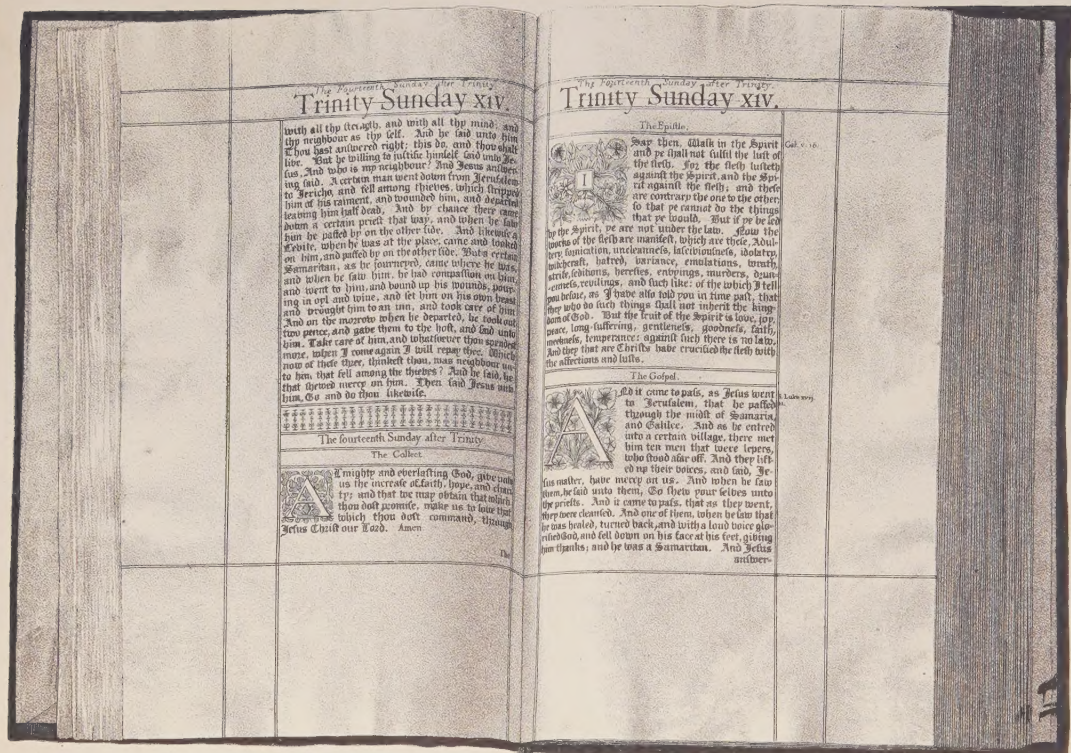 The Fourteenth Sunday after Trinity.
Trinity Sunday xiv.
with all thy strength, and with all thy mind; and
thy neighbour as thy self. And he said unto him
Thou hast answered right; this do, and thou shalt
live. But he willing to justifie himself said unto Je-
sus, And who is my neighbour? And Jesus answer-
ing said, A certain man went down from Jerusalem
to Jericho, and fell among thieves, which stripped
him of his raiment, and wounded him, and departed
leaving him half dead. And by chance there came
down a certain priest that way, and when he saw
him he passed by on the other side. And likewise a
Levite, when he was at the place, came and looked
on him, and passed by on the other side. But a certain
Samaritan, as he journeyed, came where he was,
and when he saw him, he had compassion on him,
and went to him, and bound up his wounds, pour-
ing in oyl and wine, and set him on his own beast
and brought him to an inn, and took care of him
And on the morrow when he departed, he took out
two pence, and gave them to the host, and said unto
him, Take care of him, and whatsoever thou spendest
more, when I come again I will repay thee. Which
now of these three, thinkest thou, was neighbour un-
to him, that fell among the thieves? And he said, he
that shewed mercy on him. Then said Jesus unto
him, Go and do thou likewise.
The fourteenth Sunday after Trinity
The Collect
Almighty and everlasting God, give unto
us the increase of faith, hope, and chari-
ty; and that we may obtain that which
thou dost promise, make us to love that
which thou dost command, through
Jesus Christ our Lord. Amen
The
The Fourteenth Sunday after Trinity.
Trinity Sunday xiv.
The Epistle.
I Say then, Walk in the Spirit
and ye shall not fulfil the lust of
the flesh. For the flesh lusteth
against the Spirit, and the Spi-
rit against the flesh; and these
are contrary the one to the other;
so that ye cannot do the things
that ye would. But if ye be led
by the Spirit, ye are not under the law. Now the
works of the flesh are manifest, which are these, Adul-
tery, fornication, uncleanness, lasciviousness, idolatry,
witchcraft, hatred, variance, emulations, wrath,
strife, seditions, heresies, envyings, murders, drun-
kenness, revilings, and such like: of the which I tell
you before, as I have also told you in time past, that
they who do such things shall not inherit the king-
dom of God. But the fruit of the Spirit is love, joy,
peace, long-suffering, gentleness, goodness, faith,
meekness, temperance: against such there is no law.
And they that are Christs have crucified the flesh with
the affections and lusts.
Gal. v. 16.
The Gospel.
And it came to pass, as Jesus went
to Jerusalem, that he passed
through the midst of Samaria,
and Galilee. And as he entred
into a certain village, there met
him ten men that were lepers,
who stood afar off. And they lift-
ed up their voices, and said, Je-
sus master, have mercy on us. And when he saw
them, he said unto them, Go shew your selves unto
the priests. And it came to pass, that as they went,
they were cleansed. And one of them, when he saw that
he was healed, turned back, and with a loud voice glo-
rified God, and fell down on his face at his feet, giving
him thanks; and he was a Samaritan. And Jesus
answer-
S. Luke xvij.